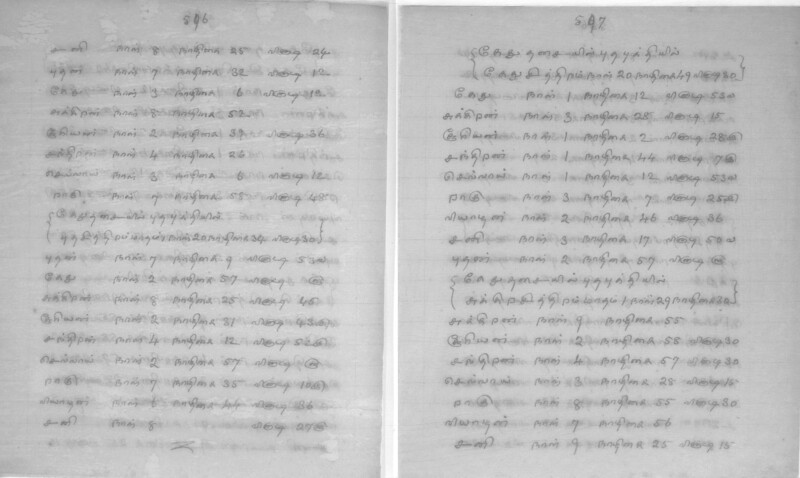 506
சனி நாள் 8 நாழிகை 25 விநாடி 24
புதன் நாள் 7 நாழிகை 32 விநாடி 12
கேது நாள் 3 நாழிகை 6 விநாடி 12
சுக்கிரன் நாள் 8 நாழிகை 53
சூரியன் நாள் 2 நாழிகை 39 விநாடி 36
சந்திரன் நாள் 4 நாழிகை 26
செவ்வாய் நாள் 3 நாழிகை 6 விநாடி 12
ராகு நாள் 7 நாழிகை 58 விநாடி
கேது தசையில் புதபுத்தியில்
புதன் நாள் 7 நாழிகை 9 விநாடி
கேது நாள் 2 நாழிகை 57 விநாடி
சுக்கிரன் நாள் 8 நாழிகை 25 விநாடி 45
சூரியன் நாள் 2 நாழிகை 31 விநாடி
சந்திரன் நாள் 4 நாழிகை 12 விநாடி
செவ்வாய் நாள் 2 நாழிகை 57 விநாடி
ராகு நாள் 7 நாழிகை 35 விநாடி
வியாழன் நாள் 6 நாழிகை 44 விநாடி 36
சனி நாள் 8 விநாடி
507
கேது தசையில் புதபுத்தியில்
நாள் 20 நாழிகை 49 விநாடி 30
கேது நாள் 1 நாழிகை 12 விநாடி
சுக்கிரன் நாள் 3 நாழிகை 28 விநாடி 15
சூரியன் நாள் 1 நாழிகை 2 விநாடி
சந்திரன் நாள் 1 நாழிகை 44 விநாடி
செவ்வாய் நாள் 1 நாழிகை 12 விநாடி
ராகு நாள் 3 நாழிகை 7 விநாடி
வியாழன் நாள் 2 நாழிகை 46 விநாடி 36
சனி நாள் 3 நாழிகை 17 விநாடி
புதன் நாள் 2 நாழிகை 57 விநாடி
கேது தசையில் புதபுத்தியில்
மாதம் 1 நாள் 29 நாழிகை 30
சுக்கிரன் நாள் 9 நாழிகை 55
சூரியன் நாள் 2 நாழிகை 58 விநாடி 30
சந்திரன் நாள் 4 நாழிகை 57 விநாடி 30
செவ்வாய் நாள் 3 நாழிகை 28 விநாடி 15
ராகு நாள் 8 நாழிகை 55 விநாடி 30
வியாழன் நாள் 7 நாழிகை 56
சனி நாள் 9 நாழிகை 25 விநாடி 15